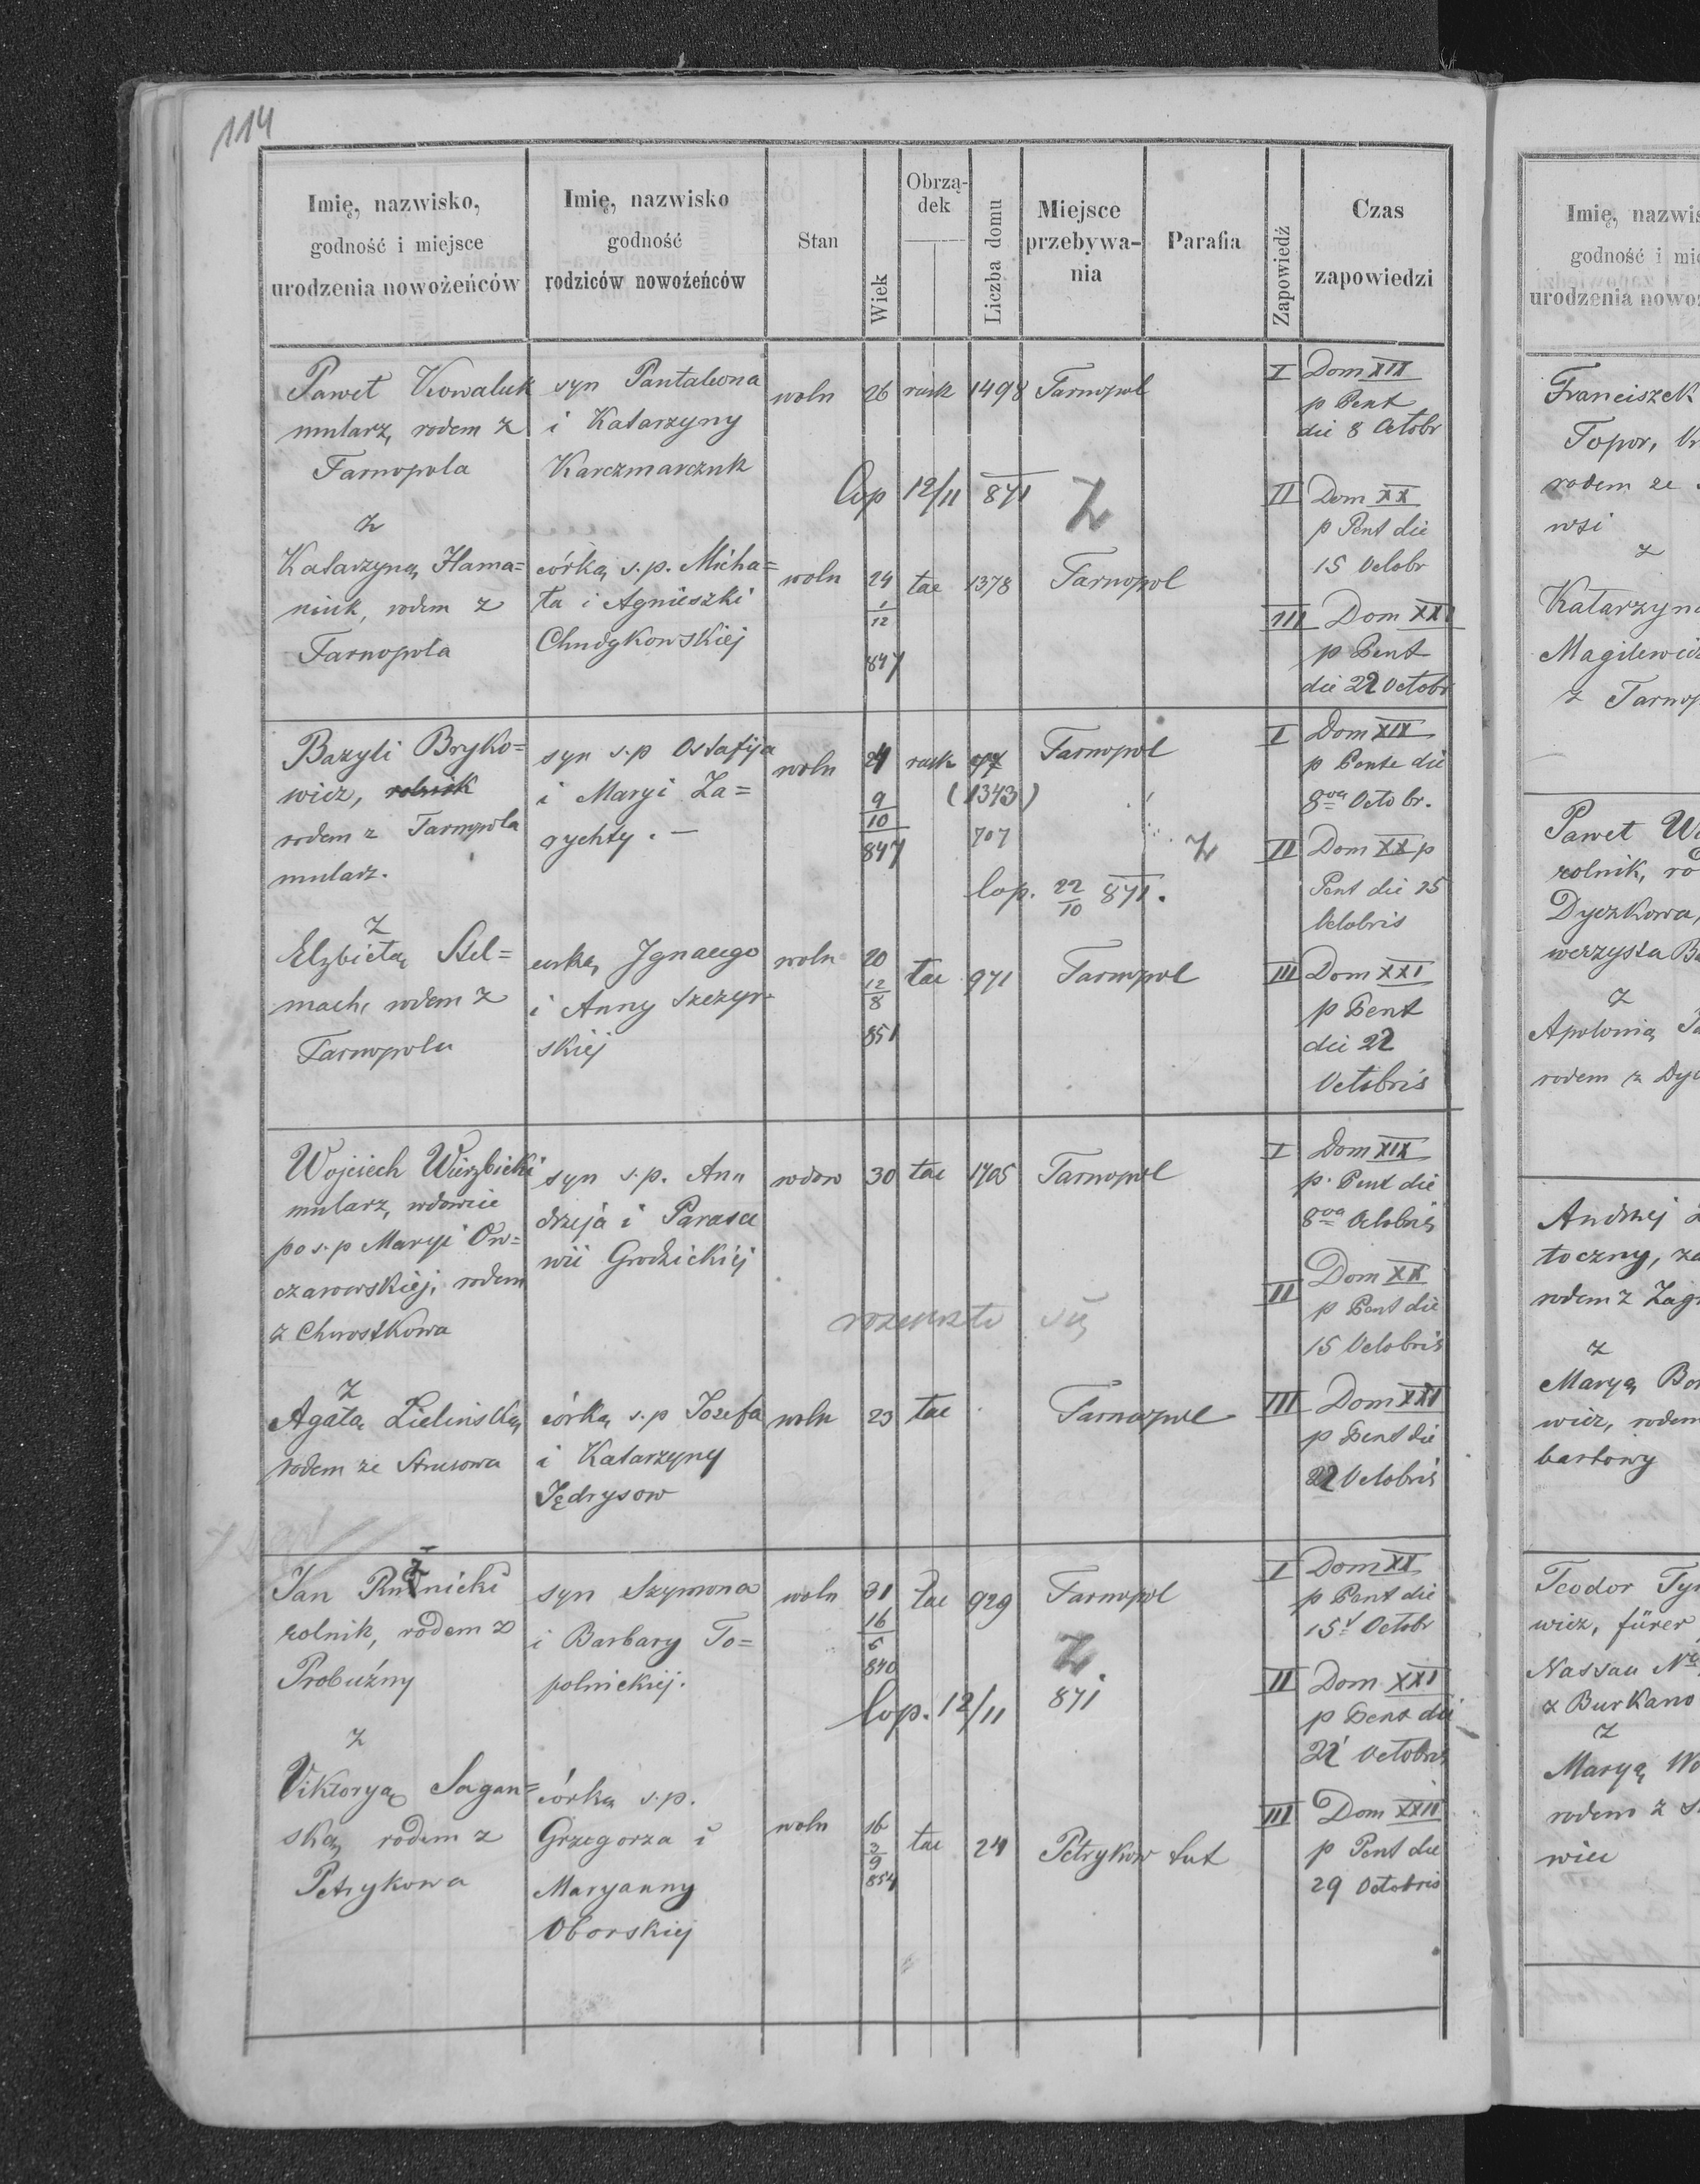 114
Imię, nazwisko,
godność i miejsce
urodzenia nowożeńców
Imię, nazwisko
godność
rodziców nowożeńców
Stan
Wiek
Obrzą-
dek
Liczba domu
Miejsce
przebywa-
nia
Parafia
Zapowiedź
Czas
zapowiedzi
Paweł Kowaluk
mularz, rodem z
Tarnopola
syn Pantaleona
i Katarzyny
Karczmarczuk
woln 26 rusk 1498 Tarnopol
I Dom XIX
p Pent
die 8 Octobr
Cop 12/11 871 Z
II Dom XX
p Pent die
15 Octobr
z
Katarzyną Hama=
niuk, rodem z
Tarnopola
córką s.p. Micha=
ła i Agnieszki
Chudykowskiej
woln 24 1/12 847 łac 1378 Tarnopol
III Dom XXI
p Pent
die 22 Octobr
Bazyli Bryko=
wicz, rolnik
rodem z Tarnopola
mularz.
syn s.p Ostafija
i Maryi Za=
rychty. —
woln 24 9/10 847 rusk 77 (1343) 707 Tarnopol
I Dom XIX
p Pente die
8va Octobr.
Z
II Dom XX p
Pent die 15
Octobris
Cop. 22/10 871.
z
Elzbietą Stel=
mach, rodem z
Tarnopola
curką Ignacego
i Anny Szczyr-
skiej
woln 20 12/8 851 łac 971 Tarnopol
III Dom XXI
p Pent
die 22
Octobris
Wojciech Wierzbicki
mularz, wdowiec
po s.p Maryi Ow=
czarowskiej, rodem
z Chorostkowa
syn s.p. An=
drzeja i Parasce
wii Grodzickiej
wdow 30 łac 1705 Tarnopol
I Dom XIX
p. Pent die
8va Octobris
II Dom XX
p Pent die
15 Octobris
rozeszło się
z
Agatą Zielinską
rodem ze Strusowa
córką s.p Jozefa
i Katarzyny
Jędrysow
woln 23 łac Tarnopol
III Dom XXI
p Pent die
22 Octobris
Jan Rudnicki
rolnik, rodem z
Probużny
syn Szymona
i Barbary To=
polnickiej.
woln 31 16/5 840 łac 929 Tarnopol
I Dom XX
p Pent die
15 Octobr
Z.
Cop. 12/11 871
II Dom XXI
p Pent die
22 Octobris
z
Viktoryą Sagan=
ską rodem z
Petrykowa
córką s.p.
Grzegorza i
Maryanny
Oborskiej
woln 16 3/9 854 łac 24 Petrykow tut
III Dom XXII
p Pent die
29 Octobris
Imię, nazwis
godność i mie
urodzenia nowoż
Franciszek
Topor,
rodem ze
wsi
z
Katarzyn
Magilewicz
z Tarnop
Paweł
rolnik, ro
Dyczkowa,
z
Apolonią
rodem z Dyc
Andrzej
toczny, za
rodem z Zagr
z
Maryą Bor
wicz, rodem
bartowy
Teodor Tym
wicz, fürer
Nassau
z Burkano
z
Maryą Wo
rodem z
wiec